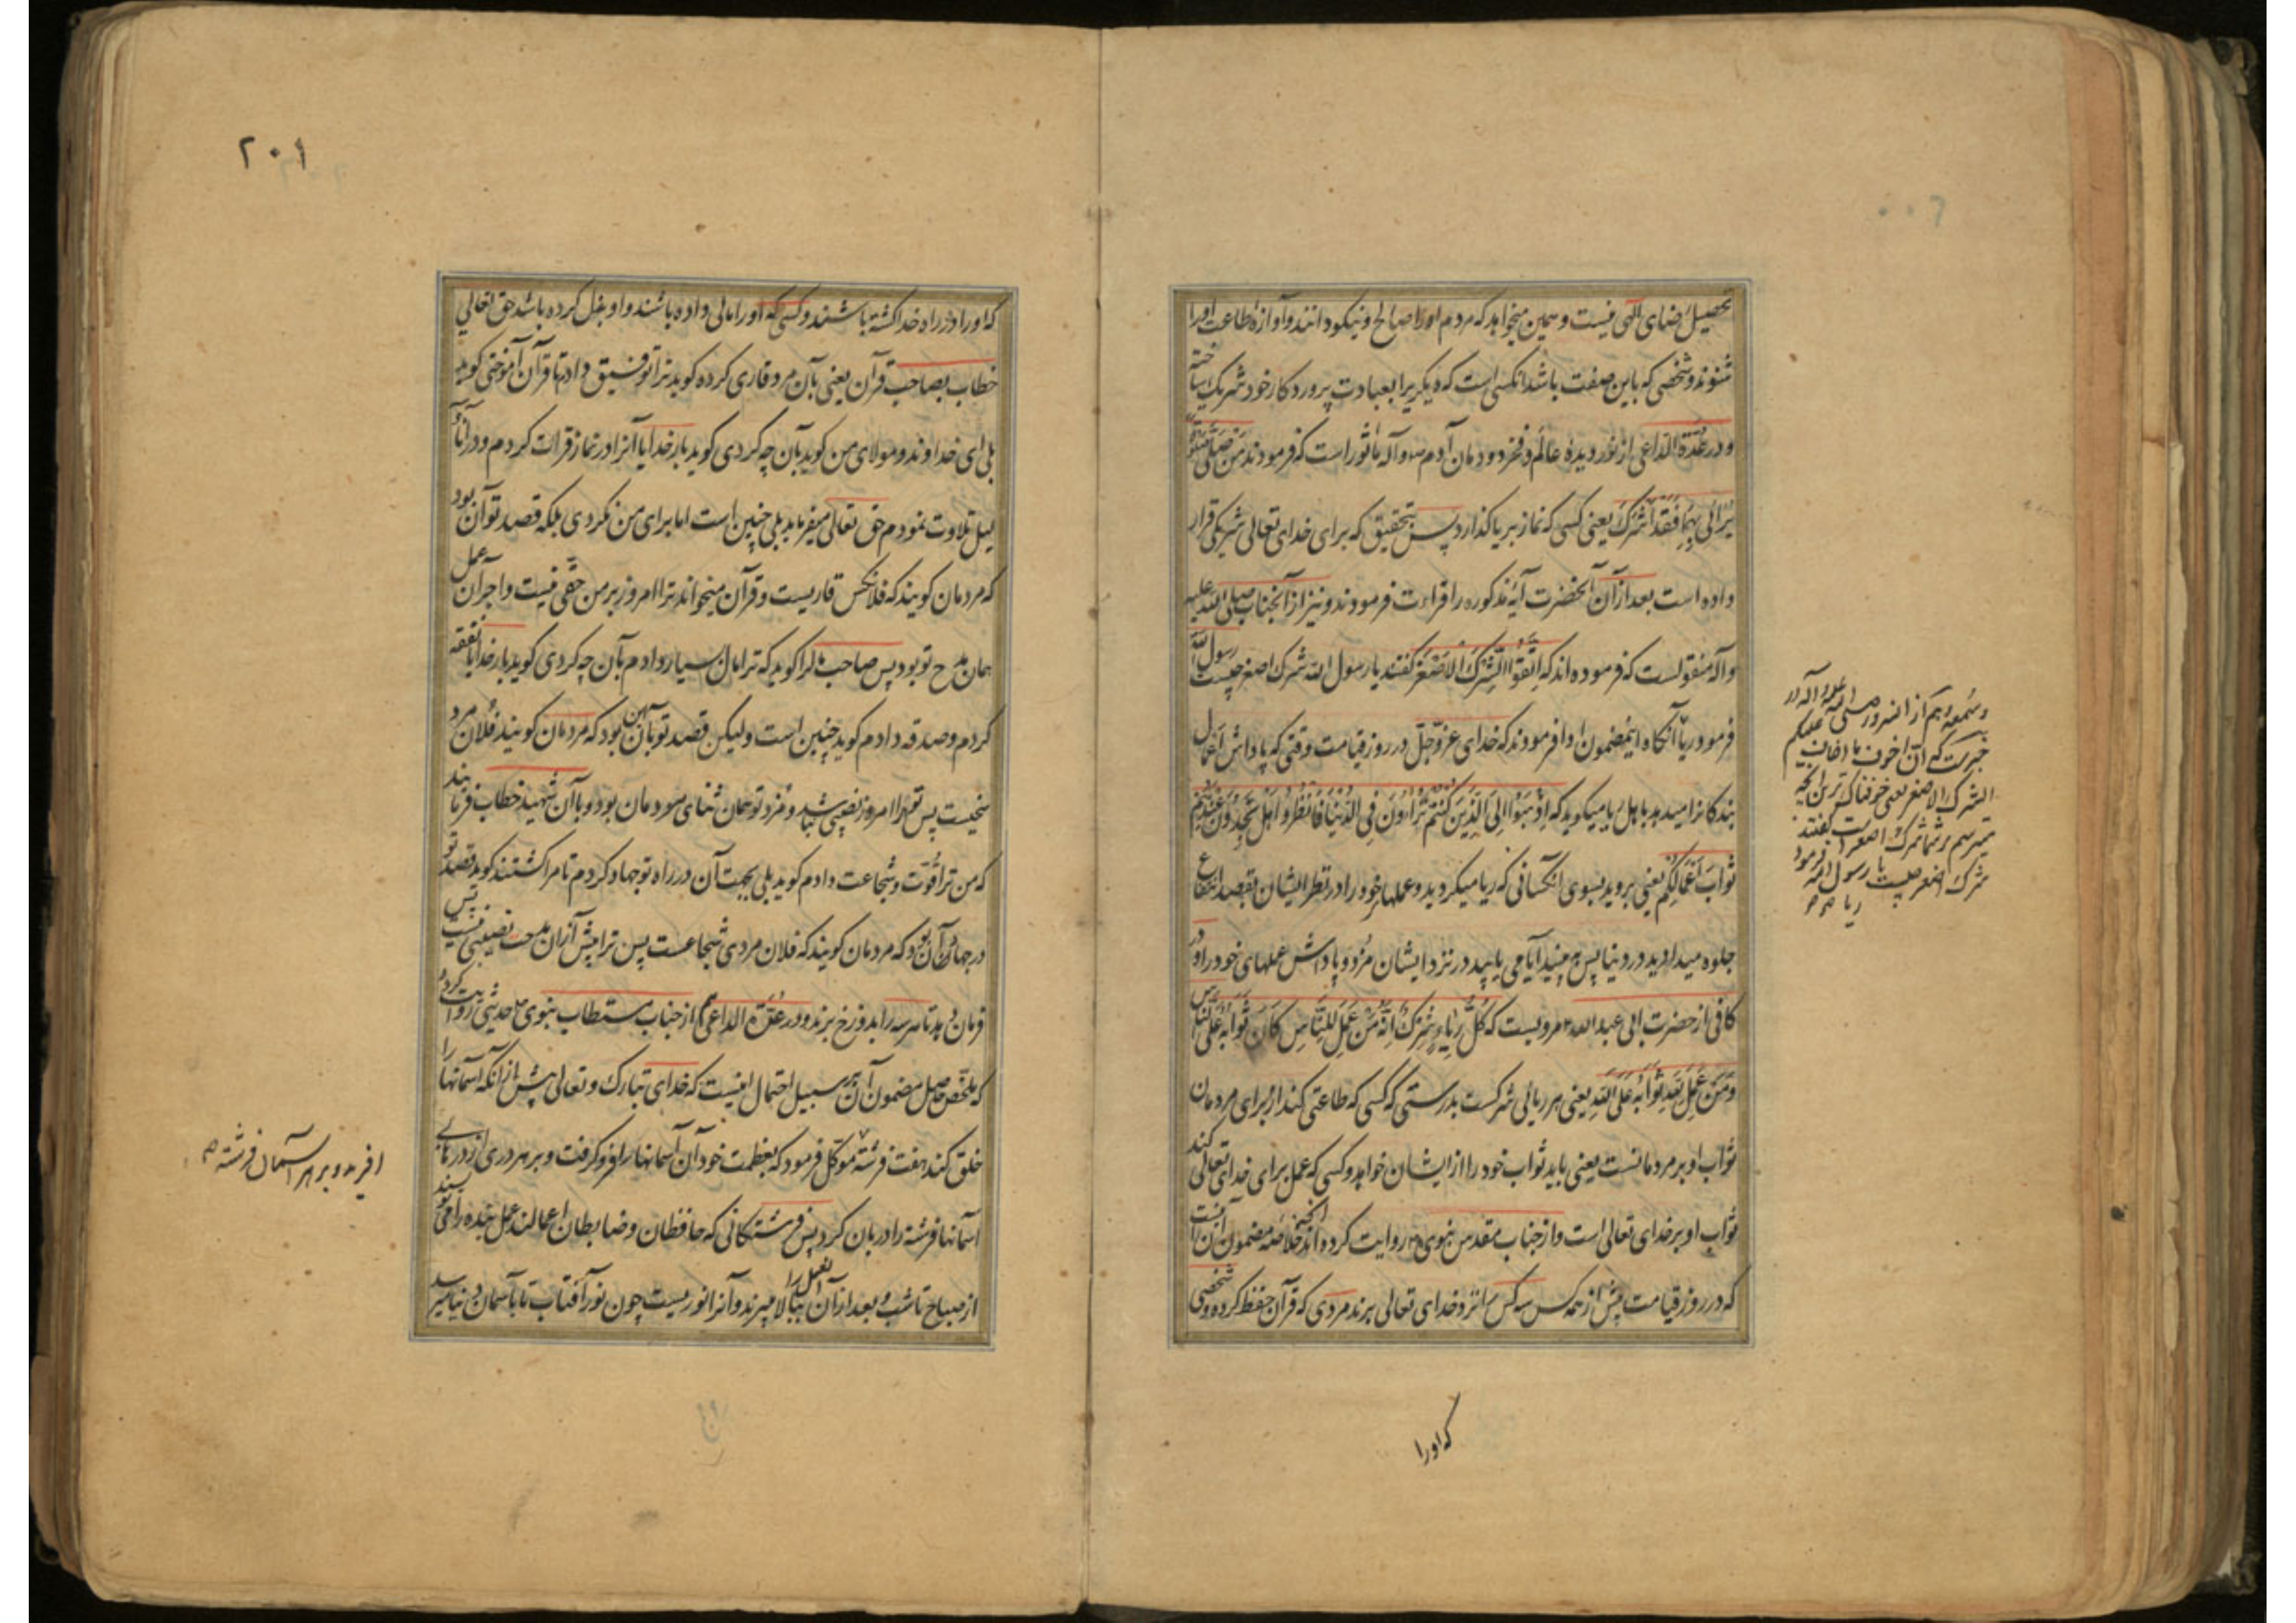 تحصیل رضای الهی نیست و همین میخواهد که مردم او را صالح و نیکو دانند و آوازهٔ طاعت او را
شنوند و شخصی که باین صفت باشد آنکسی است که دیگریرا بعبادت پروردکار خود شریک ساخته
و در عُدّة الدّاعی از نور دیدهٔ عالم و فخر دودمان آدم ص و آله ماثور است که فرمودند مَنْ صَلّیٰ صَلٰوةً
یُرائی بِهٰا فَقَدْ اَشْرَکَ یعنی کسی که نماز بریا کذارد پس بتحقیق که برای خدای تعالی شریکی قرار
داده است بعد از آن آنحضرت آیهٔ مذکوره را قراءت فرمودند و نیز از آنجناب صلی الله علیه
و آله منقولست که فرموده‌اند که اِتَّقُوا الشِّرْکَ الْاَصْغَرَ کفتند یا رسول الله شرک اصغر چیست رسول الله
فرمود ریا آنکاه اینمضمون ادا فرمودند که خدای عزّوجلّ در روز قیامت وقتی که پاداش اعمال
بندکانرا میدهد باهل ریا میکوید که اِذْهَبُوا اِلَی الَّذینَ کُنْتُمْ تُرٰاؤُنَ فِی الدُّنْیٰا فَانْظُرُوا هَلْ تَجِدُونَ عِنْدَهُمْ
ثَوٰابَ اَعْمٰالِکُمْ یعنی بروید بسوی آنکسانی که ریا میکردید و عملهای خود را در نظر ایشان بقصد انتفاع
جلوه میدادید در دنیا پس به بینید آیا می یابید در نزد ایشان مُزد و پاداش عملهای خود را و در
کافی از حضرت ابی عبدالله ع مرویست که کُلُّ رِیٰاءٍ شِرْکٌ اِنَّهُ مَنْ عَمِلَ لِلنّٰاسِ کٰانَ ثَوٰابُهُ عَلَی النّٰاسِ
وَ مَنْ عَمِلَ لِلّٰهِ ثَوٰابُهُ عَلَی اللهِ یعنی هر ریائی شرکست بدرستی که کسی که طاعتی کند از برای مردمان
ثواب او بر مردمانست یعنی باید ثواب خود را از ایشان خواهد و کسی که عمل برای خدای تعالی کند
ثواب او بر خدای تعالی است و از جناب مقدس نبوی ص روایت کرده‌اند آنچه خلاصهٔ مضمون آن اینست
که در روز قیامت پیش از همه کس سه کس را نزد خدای تعالی برند مردی که قرآن حفظ کرده و شخصی
که او را
الشرک الاصغر یعنی خوفناک ترین آنچه
میترسم بر شما شرک اصغر است گفتند
شرک اصغر چیست یا رسول الله فرمود
ریا
۲۰۱
که او را در راه خدا کشته باشند و کسی که او را مالی داده باشند و او بخل کرده باشد حق تعالی
خطاب بصاحب قرآن یعنی بآن مرد قاری کرده کوید ترا توفیق دادم تا قرآن آموختی کوید
بلی ای خداوند و مولای من کوید بآن چه کردی کوید بار خدایا آنرا در نماز قراءت کردم و در آناء
لیل تلاوت نمودم حق تعالی میفرماید بلی چنین است اما برای من نکردی بلکه قصد تو آن بود
که مردمان کویند که فلانکس قاریست و قرآن میخواند ترا امروز بر من حقّی نیست و اجر آن عمل
همان مدح تو بود پس صاحب مال را کوید که ترا مال بسیار دادم بآن چه کردی کوید بار خدایا نفقه
کردم و صدقه دادم کوید چنین است ولیکن قصد تو بآن همین بود که مردمان کویند فلان مرد
سخیست پس ترا امروز نصیبی نباشد و مُزد تو همان ثنای مردمان بود و با آن شهید خطاب فرماید
که من ترا قوّت و شجاعت دادم کوید بلی بجهت آن در راه تو جهاد کردم تا مرا کشتند کوید قصد تو
در جهاد آن بود که مردمان کویند که فلان مردی شجاعست پس ترا بیش از آن مدحت نصیبی نیست پس
فرمان دهد تا هر سه را بدوزخ برند و در عُدّة الداعی هم از جناب مستطاب نبوی ص حدیثی روایت کرده
که ملخّص حاصل مضمون آن بر سبیل احتمال اینست که خدای تبارک و تعالی پیش از آنکه آسمانها را
خلق کند هفت فرشته موکل فرمود که بعظمت خود آن آسمانها را فرو کرفت و بر هر دری از درهای
آسمانها فرشته را دربان کرد پس فرشتکانی که حافظان و ضابطان اعمالند عمل بنده را می نویسند
از صباح تا شب و بعد از آن عمل را ببالا میبرند و آنرا نوریست چون نور آفتاب تا بآسمان دنیا میرسد
افرید و بر هر آسمان فرشته